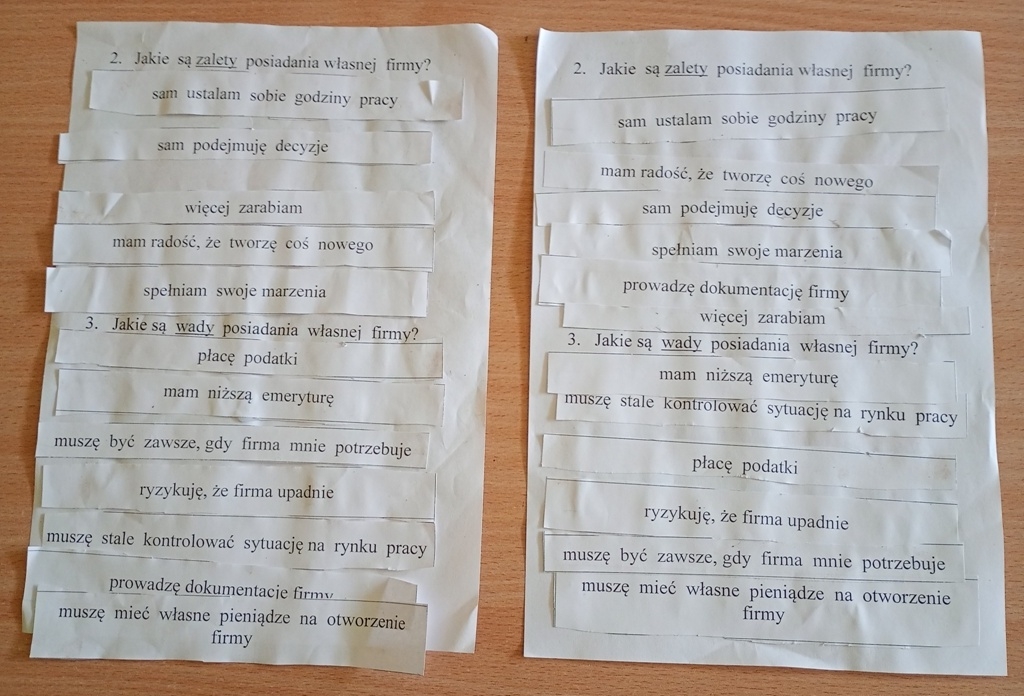 2. Jakie są zalety posiadania własnej firmy?
sam ustalam sobie godziny pracy
sam podejmuję decyzje
więcej zarabiam
mam radość, że tworzę coś nowego
spełniam swoje marzenia
3. Jakie są wady posiadania własnej firmy?
płacę podatki
mam niższą emeryturę
muszę być zawsze, gdy firma mnie potrzebuje
ryzykuję, że firma upadnie
muszę stale kontrolować sytuację na rynku pracy
prowadzę dokumentację firmy
muszę mieć własne pieniądze na otworzenie
firmy
2. Jakie są zalety posiadania własnej firmy?
sam ustalam sobie godziny pracy
mam radość, że tworzę coś nowego
sam podejmuję decyzje
spełniam swoje marzenia
prowadzę dokumentację firmy
więcej zarabiam
3. Jakie są wady posiadania własnej firmy?
mam niższą emeryturę
muszę stale kontrolować sytuację na rynku pracy
płacę podatki
ryzykuję, że firma upadnie
muszę być zawsze, gdy firma mnie potrzebuje
muszę mieć własne pieniądze na otworzenie
firmy